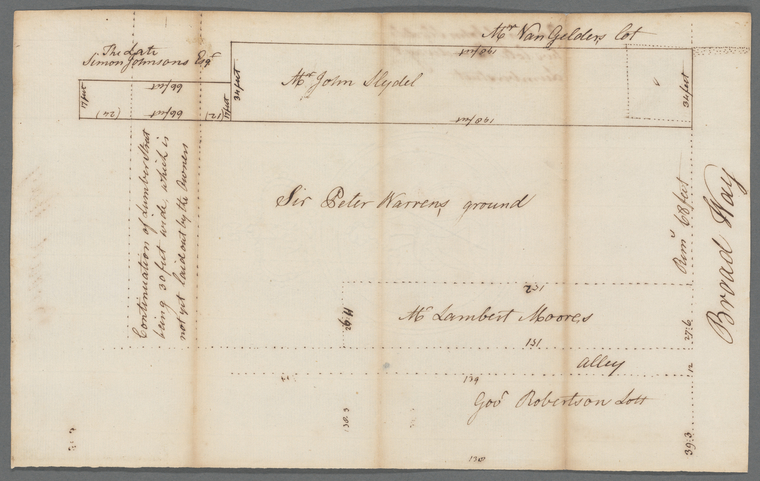 Mr VanGelders lot
The Late
Simon Johnsons Esqr
198 feet
Mr John Slydel
34 feet
34 feet
66 feet
17 feet
17 feet
(24)
66 feet
12)
198 feet
Continuation of Lumber Strat
being 30 feet wide, which is
not yet laid out by the Owners
Sir Peter Warrens ground
Remr 68 feet
Broad Way
132
Mr Lambert Moores
27:6
131
alley
12
129
Govr Robertson Lott
39:3
128